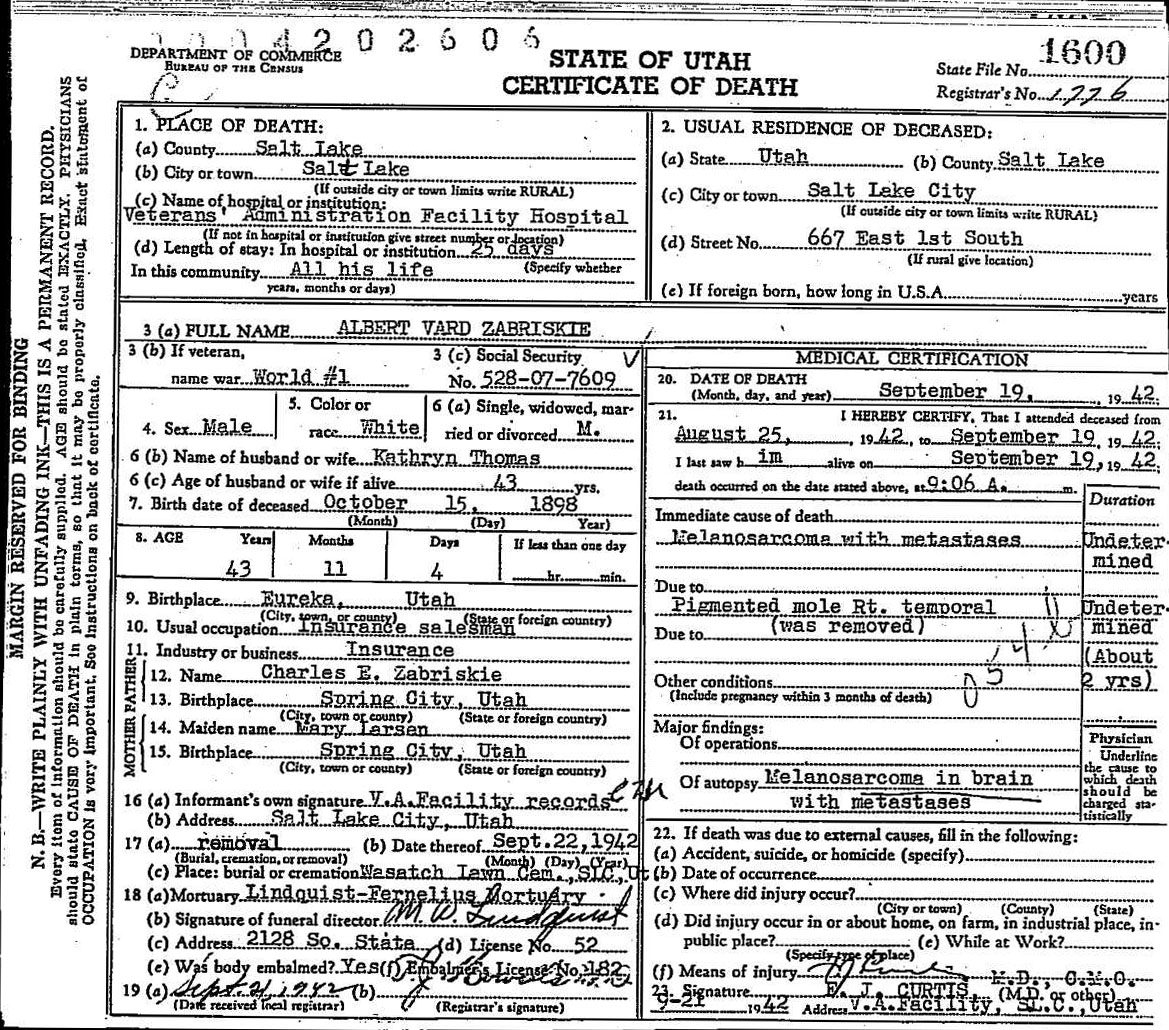 0004202606
DEPARTMENT OF COMMERCE
BUREAU OF THE CENSUS
STATE OF UTAH
CERTIFICATE OF DEATH
State File No. 1600
Registrar's No. 1776
MARGIN RESERVED FOR BINDING
N. B.—WRITE PLAINLY WITH UNFADING INK—THIS IS A PERMANENT RECORD.
Every item of information should be carefully supplied. AGE should be stated EXACTLY. PHYSICIANS
should state CAUSE OF DEATH in plain terms, so that it may be properly classified. Exact statement of
OCCUPATION is very important. See Instructions on back of certificate.
1. PLACE OF DEATH:
(a) County Salt Lake
(b) City or town Salt Lake
(If outside city or town limits write RURAL)
(c) Name of hospital or institution:
Veterans' Administration Facility Hospital
(If not in hospital or institution give street number or location)
(d) Length of stay: In hospital or institution 25 days
(Specify whether
In this community All his life
years, months or days)
2. USUAL RESIDENCE OF DECEASED:
(a) State Utah (b) County Salt Lake
(c) City or town Salt Lake City
(If outside city or town limits write RURAL)
(d) Street No. 667 East 1st South
(If rural give location)
(e) If foreign born, how long in U.S.A. years
3 (a) FULL NAME ALBERT VARD ZABRISKIE
3 (b) If veteran,
name war World #1
3 (c) Social Security
No. 528-07-7609
4. Sex Male
5. Color or
race White
6 (a) Single, widowed, mar-
ried or divorced M.
6 (b) Name of husband or wife Kathryn Thomas
6 (c) Age of husband or wife if alive 43 yrs.
7. Birth date of deceased October 15, 1898
(Month) (Day) Year)
8. AGE Years Months Days If less than one day
43 11 4 hr. min.
9. Birthplace Eureka, Utah
(City, town, or county) (State or foreign country)
10. Usual occupation Insurance salesman
11. Industry or business Insurance
FATHER
12. Name Charles E. Zabriskie
13. Birthplace Spring City, Utah
(City, town or county) (State or foreign country)
MOTHER
14. Maiden name Mary Larsen
15. Birthplace Spring City, Utah
(City, town or county) (State or foreign country)
16 (a) Informant's own signature V.A.Facility records
(b) Address Salt Lake City, Utah
17 (a) removal (b) Date thereof Sept.22,1942
(Burial, cremation, or removal) (Month) (Day) (Year)
(c) Place: burial or cremation Wasatch Lawn Cem.,SLC,Ut
18 (a) Mortuary Lindquist-Fernelius Mortuary
(b) Signature of funeral director M. W. Lindquist
(c) Address 2128 So. State (d) License No. 52
(e) Was body embalmed? Yes (f) Embalmer's License No. 182
19 (a) Sept 21, 1942 (b)
(Date received local registrar) (Registrar's signature)
MEDICAL CERTIFICATION
20. DATE OF DEATH
(Month, day, and year) September 19, 1942.
21. I HEREBY CERTIFY, That I attended deceased from
August 25, 1942, to September 19, 1942;
I last saw him alive on September 19, 1942;
death occurred on the date stated above, at 9:06 A. m.
Duration
Immediate cause of death
Melanosarcoma with metastases Undeter-
mined
Due to
Pigmented mole Rt. temporal Undeter-
(was removed) mined
Due to
(About
2 yrs)
Other conditions
(Include pregnancy within 3 months of death)
Major findings:
Of operations
Of autopsy Melanosarcoma in brain
with metastases
Physician
Underline
the cause to
which death
should be
charged sta-
tistically
22. If death was due to external causes, fill in the following:
(a) Accident, suicide, or homicide (specify)
(b) Date of occurrence
(c) Where did injury occur?
(City or town) (County) (State)
(d) Did injury occur in or about home, on farm, in industrial place, in-
public place? (e) While at Work?
(Specify type of place)
(f) Means of injury
23. Signature E. J. CURTIS M.D., C.M.O.
(M.D. or other)
9-21 1942 Address V.A.Facility, SLC.,Utah